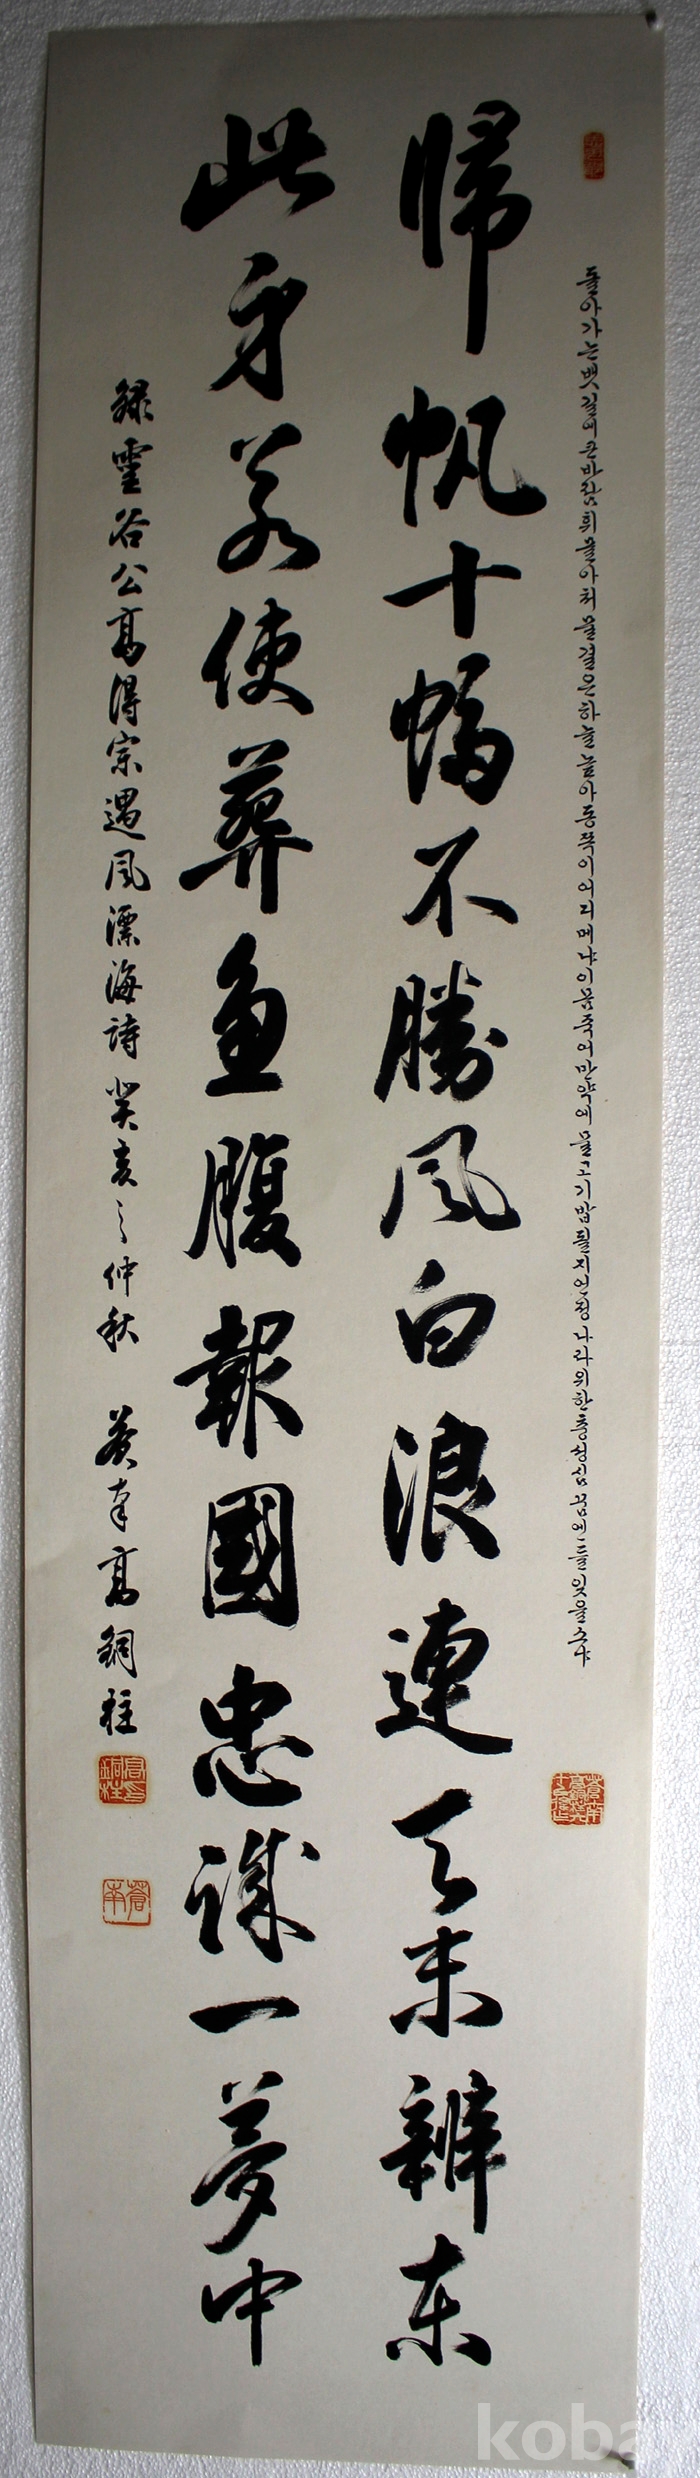 돌아가는뱃길에큰바람휘몰아쳐물결은하늘높아동쪽이어디메냐이몸죽어만약에물고기밥될지언정나라위한충성심꿈엔들잊을소냐
帰帆十幅不勝風白浪連天未辨東
此身若使葬魚腹報國忠誠一夢中
錄靈谷公高得宗遇風漂海詩 癸亥之仲秋 蒼南高銅柱
高銅柱印
蒼南
koba